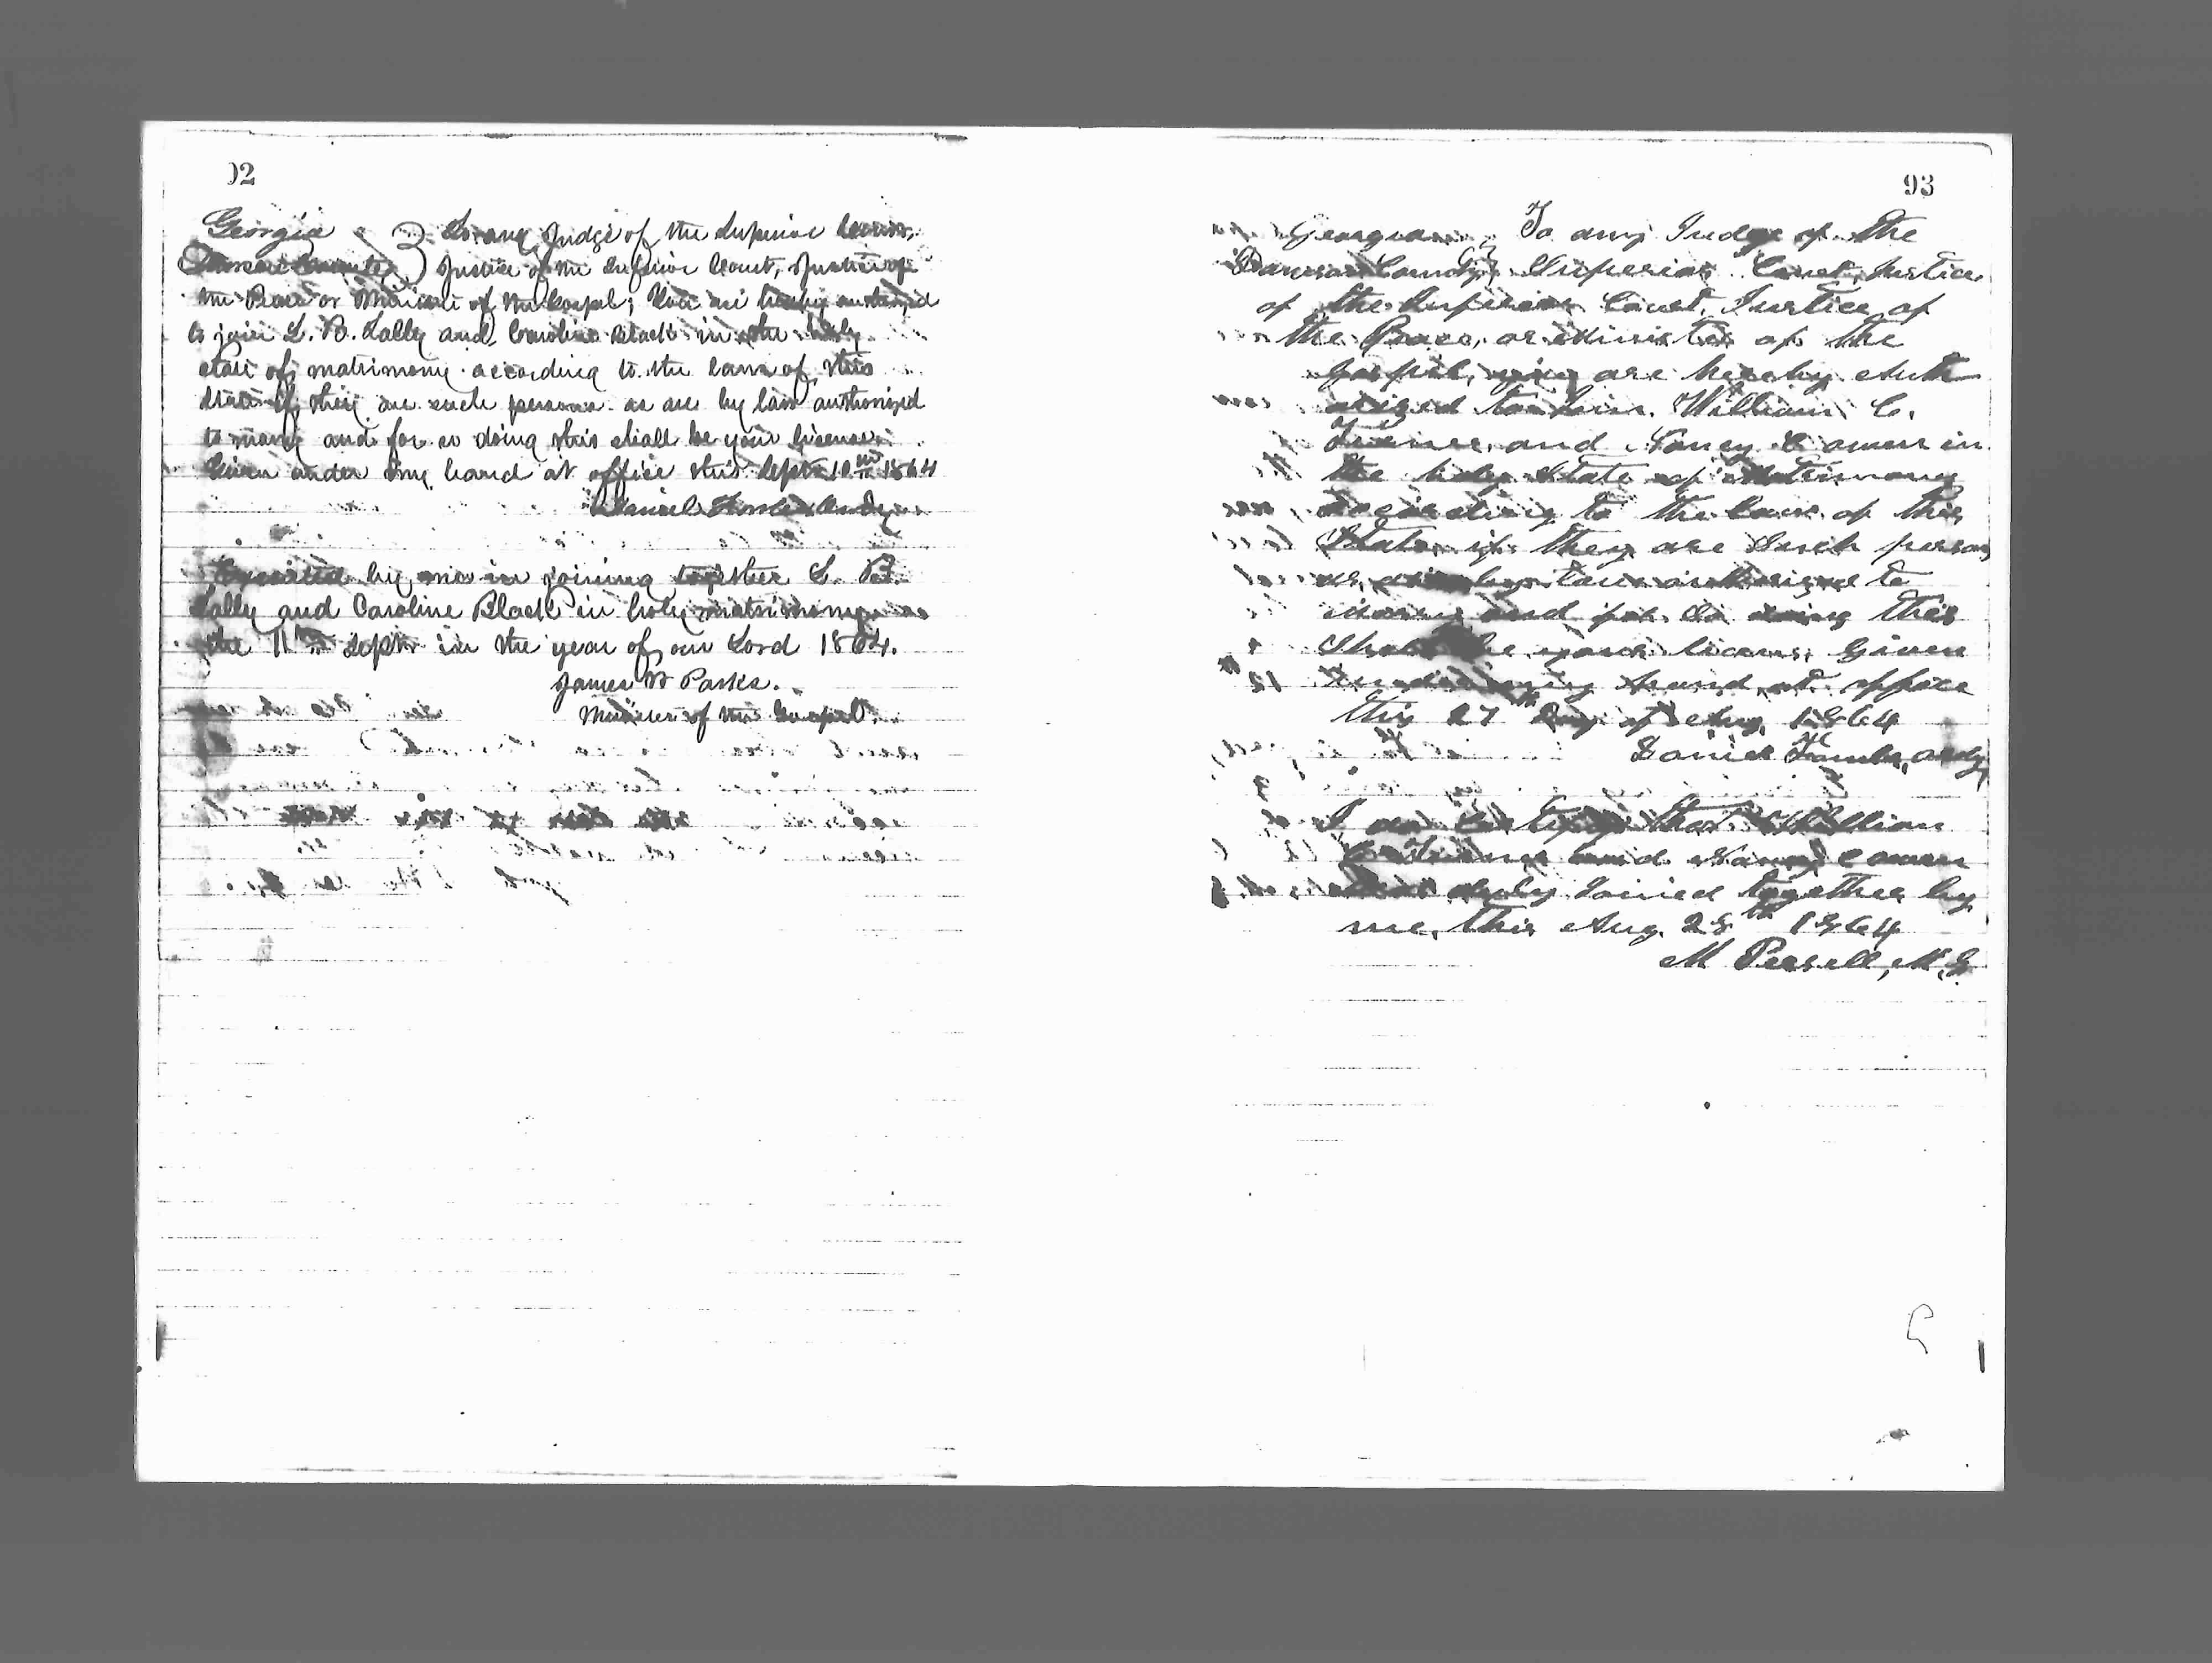 92
Georgia } To any Judge of the Superior Court,
Dawson County } Justice of the Inferior Court, Justice of
the Peace or Minister of the Gospel; You are hereby authorized
to join L. B. Lally and Caroline Black in the holy
state of matrimony according to the laws of this
State if they are such persons as are by law authorized
to marry and for so doing this shall be your license.
Given under my hand at office this Sept 10th 1864
Daniel Fowler Ordy
Executed by me in joining together L. B.
Lally and Caroline Black in holy matrimony
the 11th Sept in the year of our Lord 1864.
James W Parks.
Minister of the Gospel.
93
Georgia } To any Judge of the
Dawson County } Superior Court, Justice
of the Inferior Court, Justice of
the Peace, or Minister of the
Gospel, you are hereby Auth
orized to Join William C.
and Nancy in
the holy State of Matrimony
according to the laws of this
State if they are Such persons
as are by law authorized to
marry and for So doing this
Shall be your licens, Given
under my hand at office
this 27th Day of Aug 1864
Daniel Ordy
I do Certify that William
C and Nancy
were duly Joined together by
me, this Aug. 28th 1864
M Pursell, M.G.